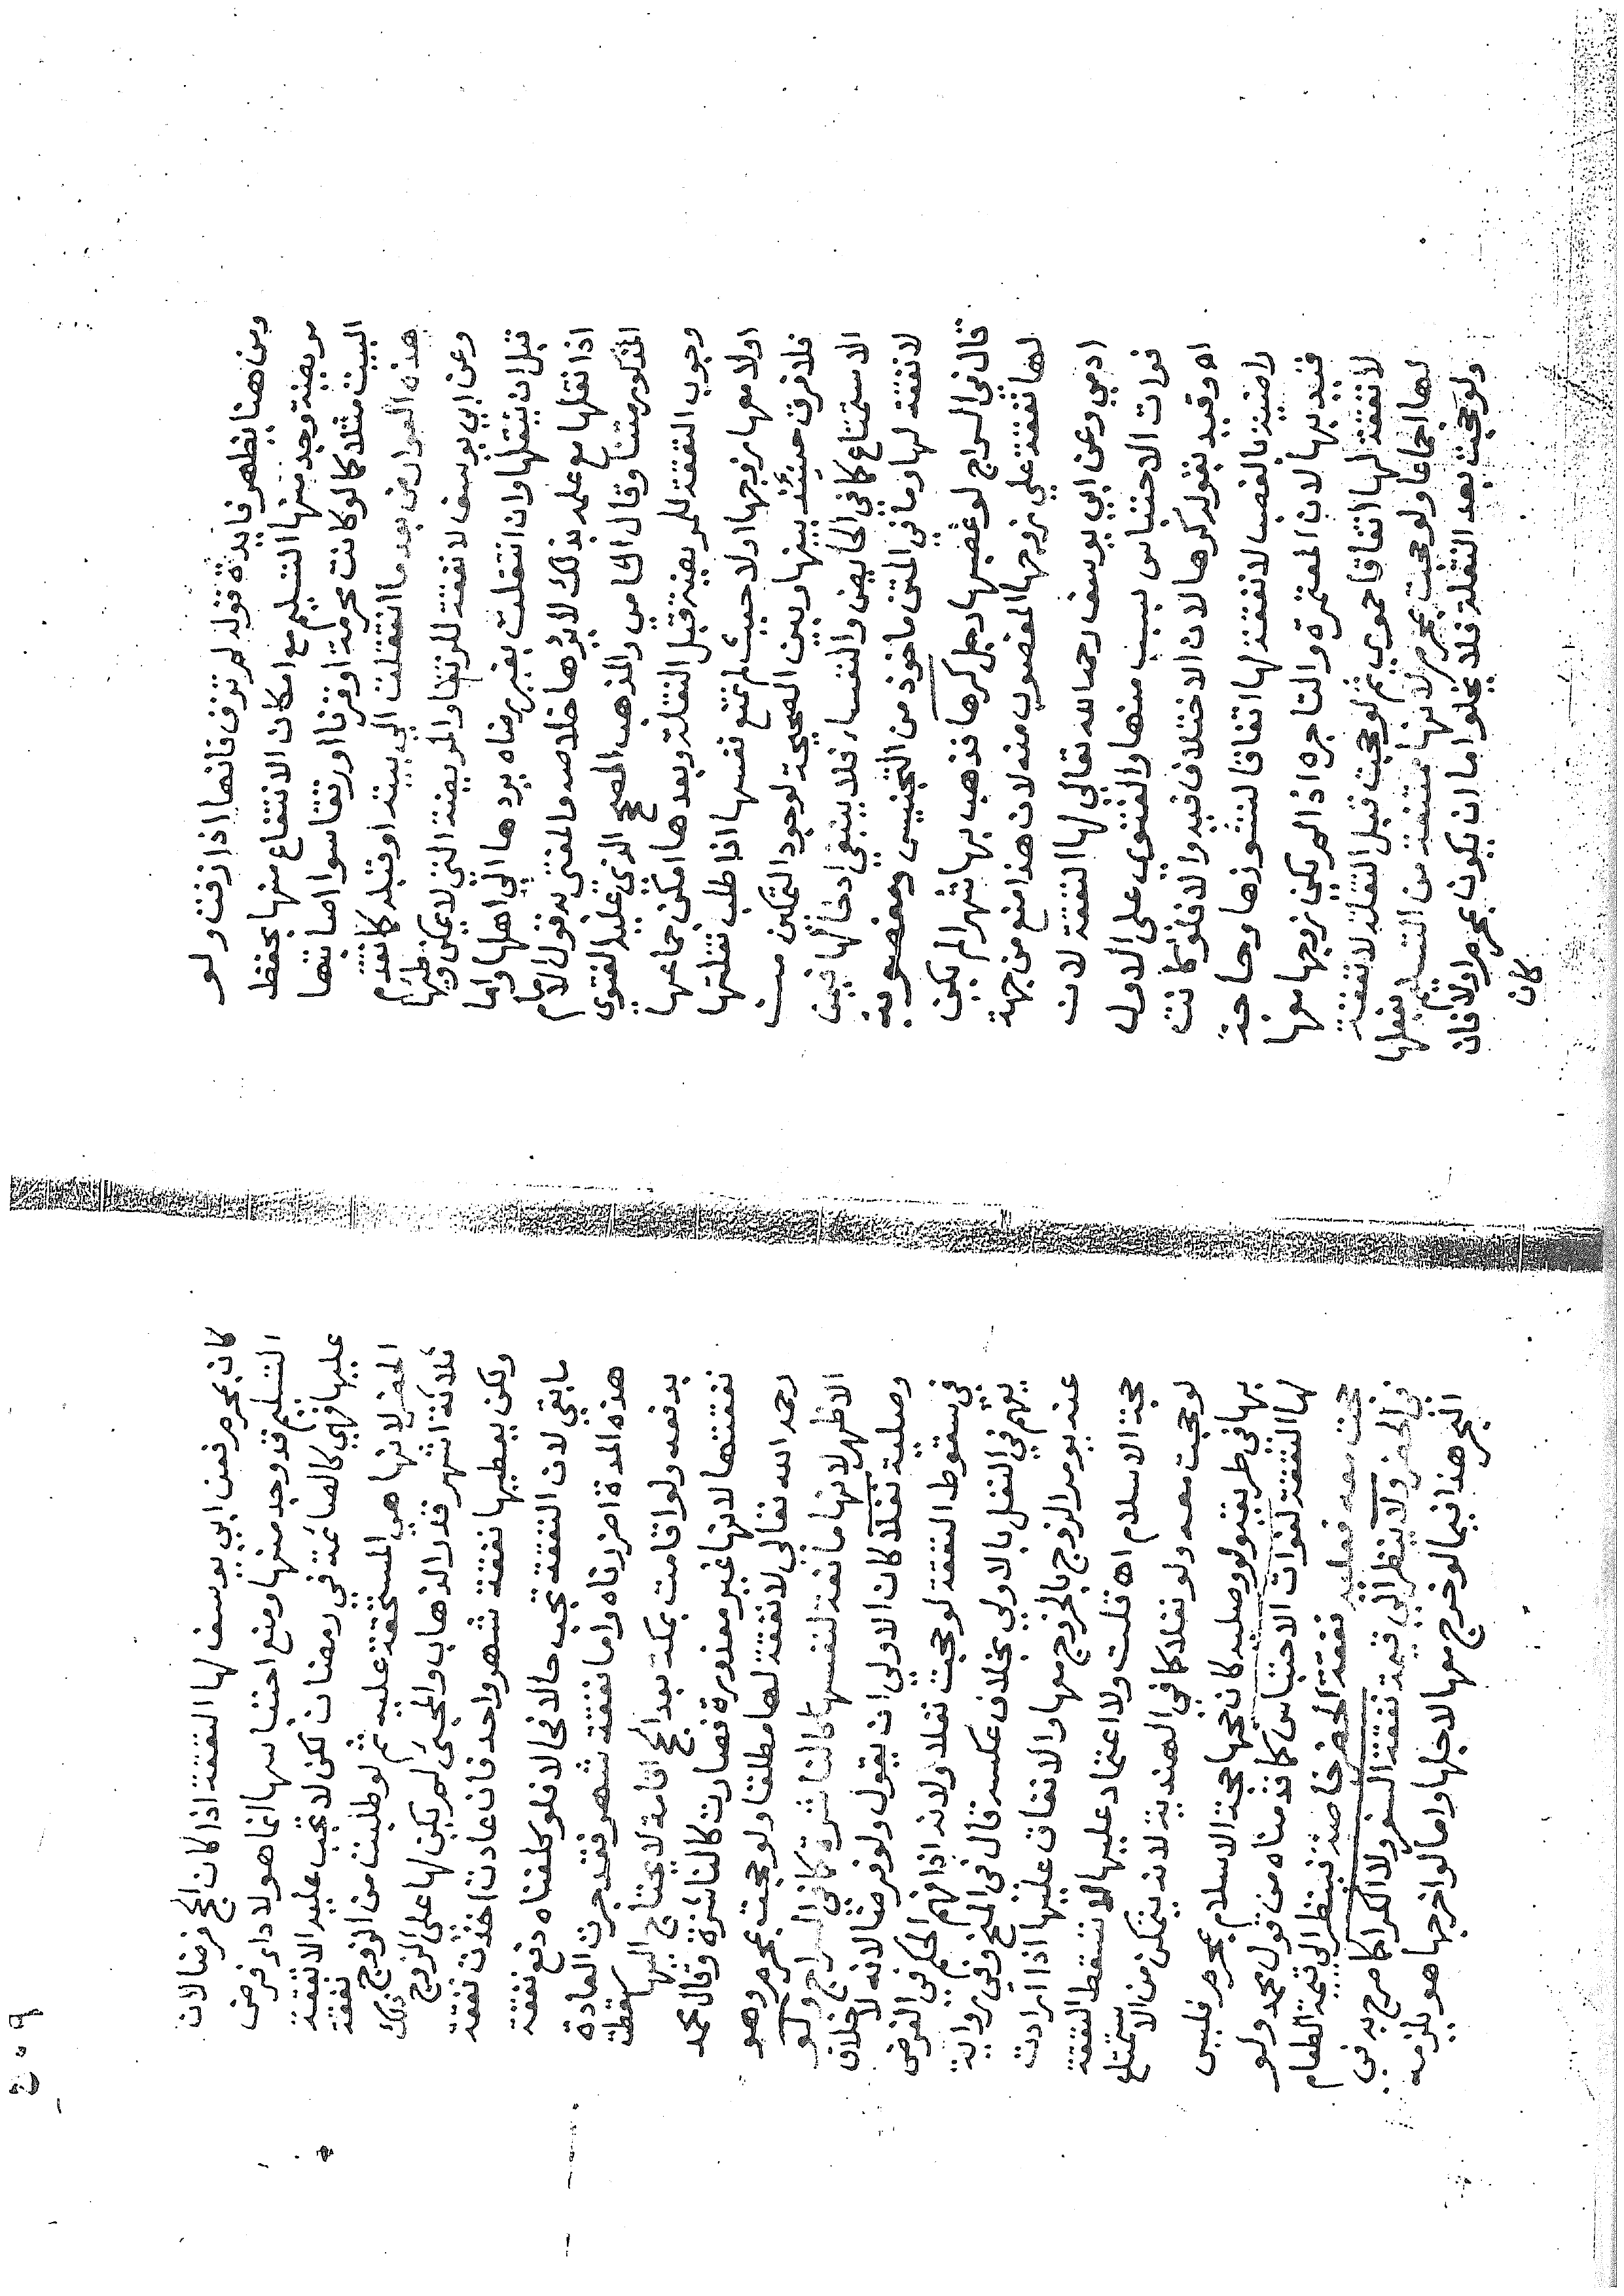 ومن هنا يظهر فايدة قوله لم تزف فانها اذا زفت ولو
مريضة وجد منها التسليم مع امكان الانتفاع منها بحفظ
البيت مثلا كما لو كانت محرمة او قرنا او رتقا سوا اصابتها
هذه العوارض بعد ما انتقلت الي بيته او قبله كما تقدم
وعن ابي يوسف لا نفقة للرتقا والمريضة التي لا يمكن وطئها
قبل ان ينقلها وان انتقلت بغير رضاه يردها الي اهلها واما
اذا نقلها مع علمه بذلك لا يردها خلاصه والمفتي به قول الامام
المذكور متنا وقال الكامن والمذهب الصحيح الذي عليه الفتوي
وجوب النفقة للمريضة قبل النقلة وبعدها امكن جماعها
اولا معها زوجها اولا حيث لم تمنع نفسها اذا طلب نقلتها
فلا فرق حينئذ بينها وبين الصحيحة لوجود التمكين من
الاستمتاع كما في الحايض والنفساء فلا ينبغي ادخالها فيمن
لا نفقة لها وما في المتن ماخوذ من التجنيس ومغصوبة
قال في السراج لو غصبها رجل كرها فذهب بها شهرا لم يكن
لها نفقة علي زوجها المغصوب منه لان هذا منع من جهة
ادمي وعن ابي يوسف رحمه الله تعالي لها النفقة لان
فوات الاحتباس بسبب منها والفتوي علي الاول
اه وقيد بقوله كرها لان الاختلاف فيه والا فلو كانت
راضية بالغصب لا نفقة لها اتفاقا لنشوزها وحاجة
قيد بها لان المعتمرة والتاجرة اذا لم يكن زوجها معها
لا نفقة لها اتفاقا حموي ثم لو حجت قبل النقلة لا نفقة
لها اجماعا ولو حجت بمحرم لانها ممتنعة من التسليم بفعلها
ولو حجت بعد النقلة فلا يخلوا اما ان يكون بمحرم اولا فان
كان
كان بمحرم فعن ابي يوسف لها النفقة اذا كان الحج فرضا لان
التسليم قد وجد منها ومنع احتباسها انما هو لاداء فرض
عليها فهي كالصائمة في رمضان لكن لا تجب عليه الا نفقة
الحضر لانها هي المستحقة عليه ثم لو طلبت من الزوج نفقة
ثلاثة اشهر قدر الذهاب والمجئ لم يكن لها علي الزوج ذلك
ولكن يعطيها نفقة شهر واحد فان عادت اخذت نفقة
ما بقي لان النفقة تجب حالا فحالا فلو كلفناه دفع نفقة
هذه المدة اضررناه واما نفقة شهر فقد جرت العادة
بدفعه ولو اقامت بمكة بعد الحج اقامة لا يحتاج اليها سقطت
نفقتها لانها غير معذورة فصارت كالناشزة وقال محمد
رحمه الله تعالي لا نفقة لها مطلقا ولو حجت بمحرم وهو
الاظهر لانها مانعة لنفسها كالناشزة كما في السراج ولو
وصلية نفلا كان الاولي ان يقول ولو فرضا لانه لا خلاف
في سقوط النفقة لو حجت نفلا ولانه اذا فهم الحكم في الفرض
يفهم في النفل بالاولي بخلاف عكسه قال في المنح وفي رواية
عنه يومر الزوج بالخروج معها والانفاق عليها اذا ارادت
حجة الاسلام اه قلت ولا اعتماد عليها الا لتسقط النفقة
لو حجت معه ولو نفلا كما في الهندية لانه يتمكن من الاستمتاع
بها في طريقه ولو وصليه كان حجها حجة الاسلام بمحرم فليس
لها النفقة لفوات الاحتباس كما قدمناه من قول محمد ولو
حجت معه فعليه نفقة الحضر خاصة فينظر الي قيمة الطعام
في الحضر ولا ينظر الي قيمة نفقة السفر ولا الكرا كما صرح به في
البحر هذا فيما لو خرج معها لاجلها واما لو اخرجها هو يلزمه
٤٠٩